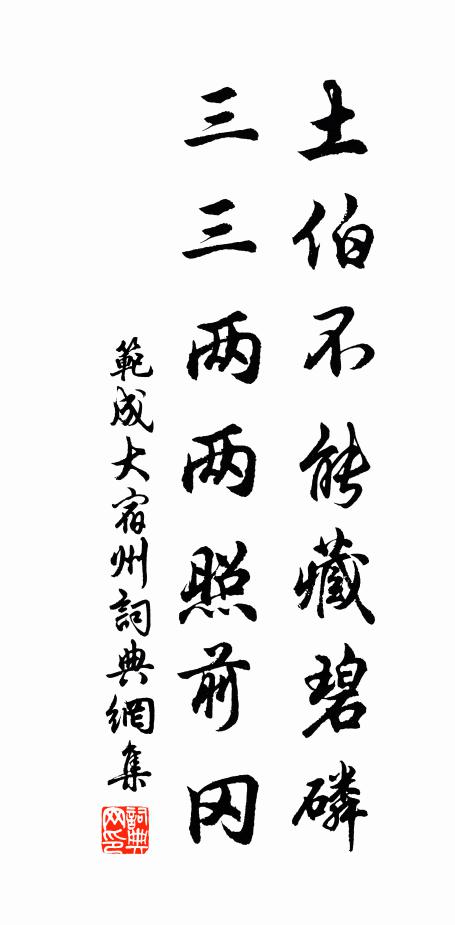 土伯不能藏碧磷
三三两两照前冈
範成大宿州詞典網集
詞典網印